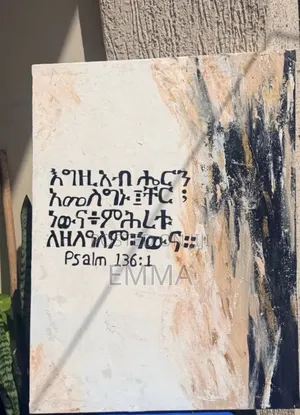 እግዚአብ ሔርን
አመስግኑ ፤ቸር ፤
ነውና፥ምሕረቱ
ለዘላዓለም፡ነውና።
Psalm 136:1
EMMA